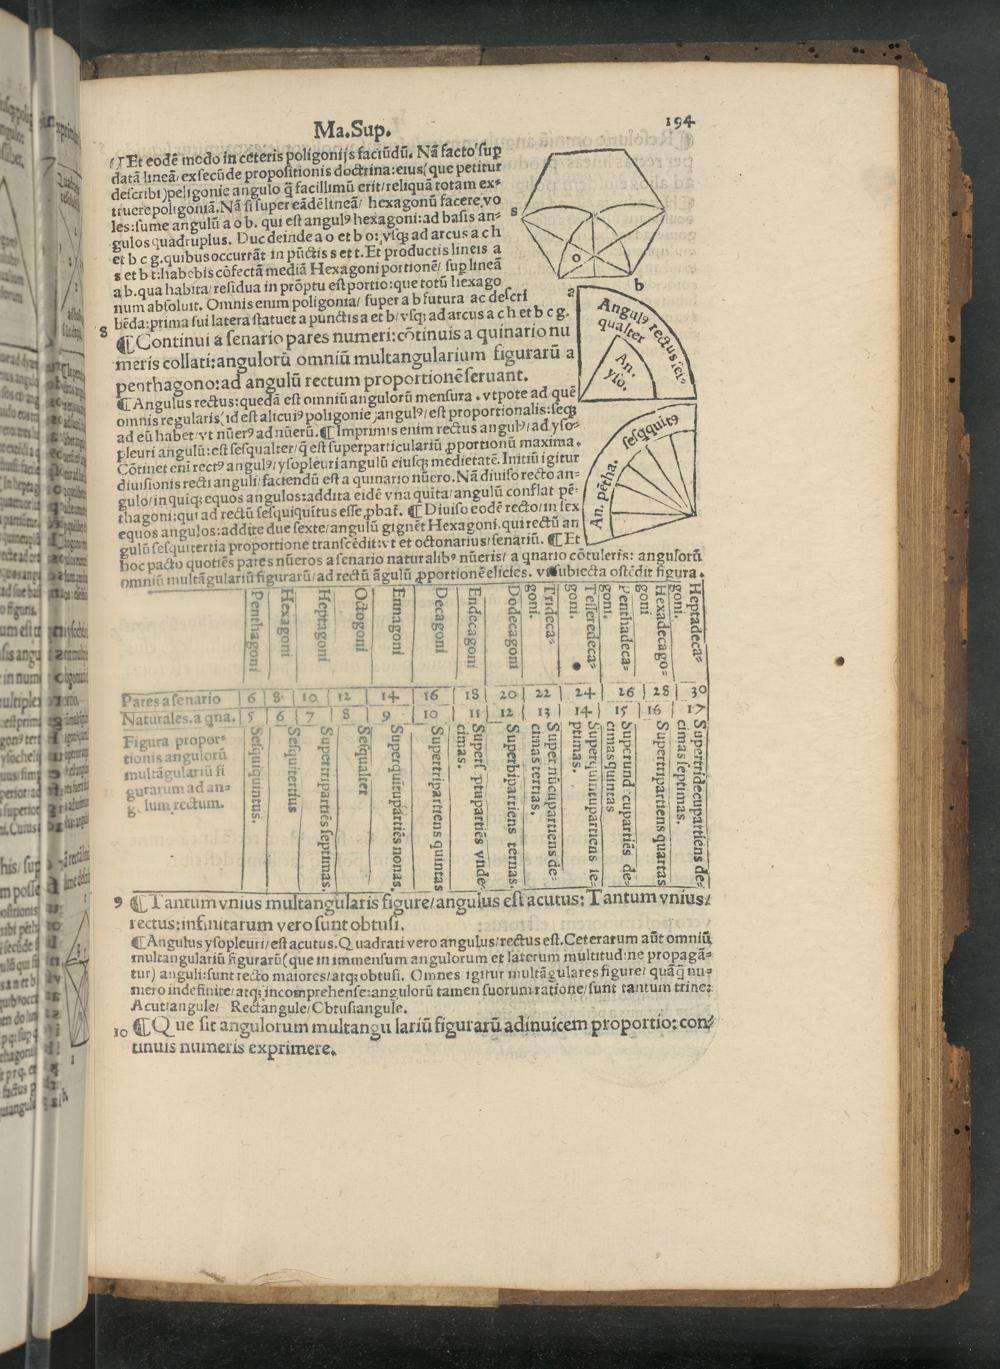 Ma.Sup.
194
¶Et eodē modo in ceteris poligonijs faciūdū. Nā facto sup
datā lineā/ ex secūde propositionis doctrina: eius (que petitur
describi) peligonie angulo q̄ facillimū erit/ reliquā totam ex⸗
truere poligoniā. Nā si super eādē lineā/ hexagonū facere vo
les: sume angulū a o b. qui est angulꝰ hexagoni: ad basis an⸗
gulos quadruplus. Duc deinde a o et b o: vsq; ad arcus a c h
et b c g. quibus occurrāt in pūctis s et t. Et productis lineis a
s et b t: habebis cōfectā mediā Hexagoni portionē/ sup lineā
a b. qua habita/ residua in prōptu est portio: que totū hexago
num absoluit. Omnis enim poligonia/ super a b futura ac descri
bēda: prima sui latera statuet a punctis a et b/ vsq; ad arcus a c h et b c g.
8 ¶Continui a senario pares numeri: cōtinuis a quinario nu
meris collati: angulorū omniū multangularium figurarū a
penthagono: ad angulū rectum proportionē seruant.
¶Angulus rectus: quedā est omniū angulorū mensura. vtpote ad quē
omnis regularis (id est alicuiꝰ poligonie) angulꝰ/ est proportionalis: seq;
ad eū habet/ vt nūerꝰ ad nūerū. ¶Imprimis enim rectus angulꝰ/ ad yso⸗
pleuri angulū: est sesqualter/ q̄ est superparticulariū ꝓportionū maxima.
Cōtinet eni rectꝰ angulꝰ/ ysopleuri angulū eiusq; medietatē. Initiū igitur
diuisionis recti anguli/ faciendū est a quinario nūero. Nā diuiso recto an⸗
gulo/ in quiq; equos angulos: addita eidē vna quita/ angulū conflat pē⸗
thagoni: qui ad rectū sesquiquītus esse ꝓbat. ¶Diuiso eodē recto/ in sex
equos angulos: addite due sexte/ angulū gignēt Hexagoni. qui rectū an
gulū sesquitertia proportione transcēdit: vt et octonarius/ senariū. ¶Et
hoc pacto quotiēs pares nūeros a senario naturalibꝰ nūeris/ a qnario cōtuleris: angulorū
omniū multāgulariū figurarū/ ad rectū āgulū ꝓportionē elicies. vt subiecta ostēdit figura.
s
o
a
b
Angulꝰ rectus ses⸗
qualter
An.
yso.
An. pētha. sesqquitꝰ
Penthagoni
Hexagoni
Heptagoni
Octogoni
Ennagoni
Decagoni
Endecagoni
Dodecagoni
Trideca⸗
goni.
Tesseredeca⸗
goni.
Penthadeca⸗
goni
Hexadecago⸗
goni
Heptadeca⸗
goni.
Pares a senario 6 8 10 12 14 16 18 20 22 24 26 28 30
Naturales. a qna. 5 6 7 8 9 10 11 12 13 14 15 16 17
Figura propor⸗
tionis angulorū
multāgulariū fi
gurarum ad an⸗
lum rectum.
Sesquiquintus.
Sesquitertius
Supertripartiēs septimas.
Sesqualter
Superquītupartiēs nonas.
Supertripartiens quintas
Supers ptupartiēs vnde
cimas.
Superbipartiens ternas.
Super nūcupartiens de⸗
cimas tertias.
Superquintupartiens se⸗
ptimas.
Superund cupartiēs de⸗
cimas quintas
Supertripartiens quartas
Supertridecupartiens de⸗
cimas septimas.
9 ¶Tantum vnius multangularis figure/ angulus est acutus: Tantum vnius/
rectus: infinitarum vero sunt obtusi.
¶Angulus ysopleuri/ est acutus. Quadrati vero angulus/ rectus est. Ceterarum aūt omniū
multangulariū figurarū (que in immensum angulorum et laterum multitud ne propagā⸗
tur) anguli: sunt recto maiores/ atq; obtusi. Omnes igitur multāgulares figure/ quāq̄ nu⸗
mero indefinite/ atq; incomprehense: angulorū tamen suorum ratione/ sunt tantum trine:
Acutiangule/ Rectangule/ Obtusiangule.
10 ¶Que sit angulorum multangulariū figurarū adinuicem proportio: con⸗
tinuis numeris exprimere.